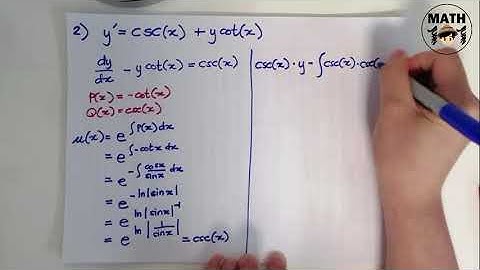 2) y' = csc(x) + ycot(x)
dy/dx - ycot(x) = csc(x)
P(x) = -cot(x)
Q(x) = csc(x)
μ(x) = e^∫P(x)dx
= e^∫-cotx dx
= e^-∫cosx/sinx dx
= e^-ln|sinx|
= e^ln|sinx|^-1
= e^ln|1/sinx| = csc(x)
csc(x)·y = ∫csc(x)·csc(
MATH